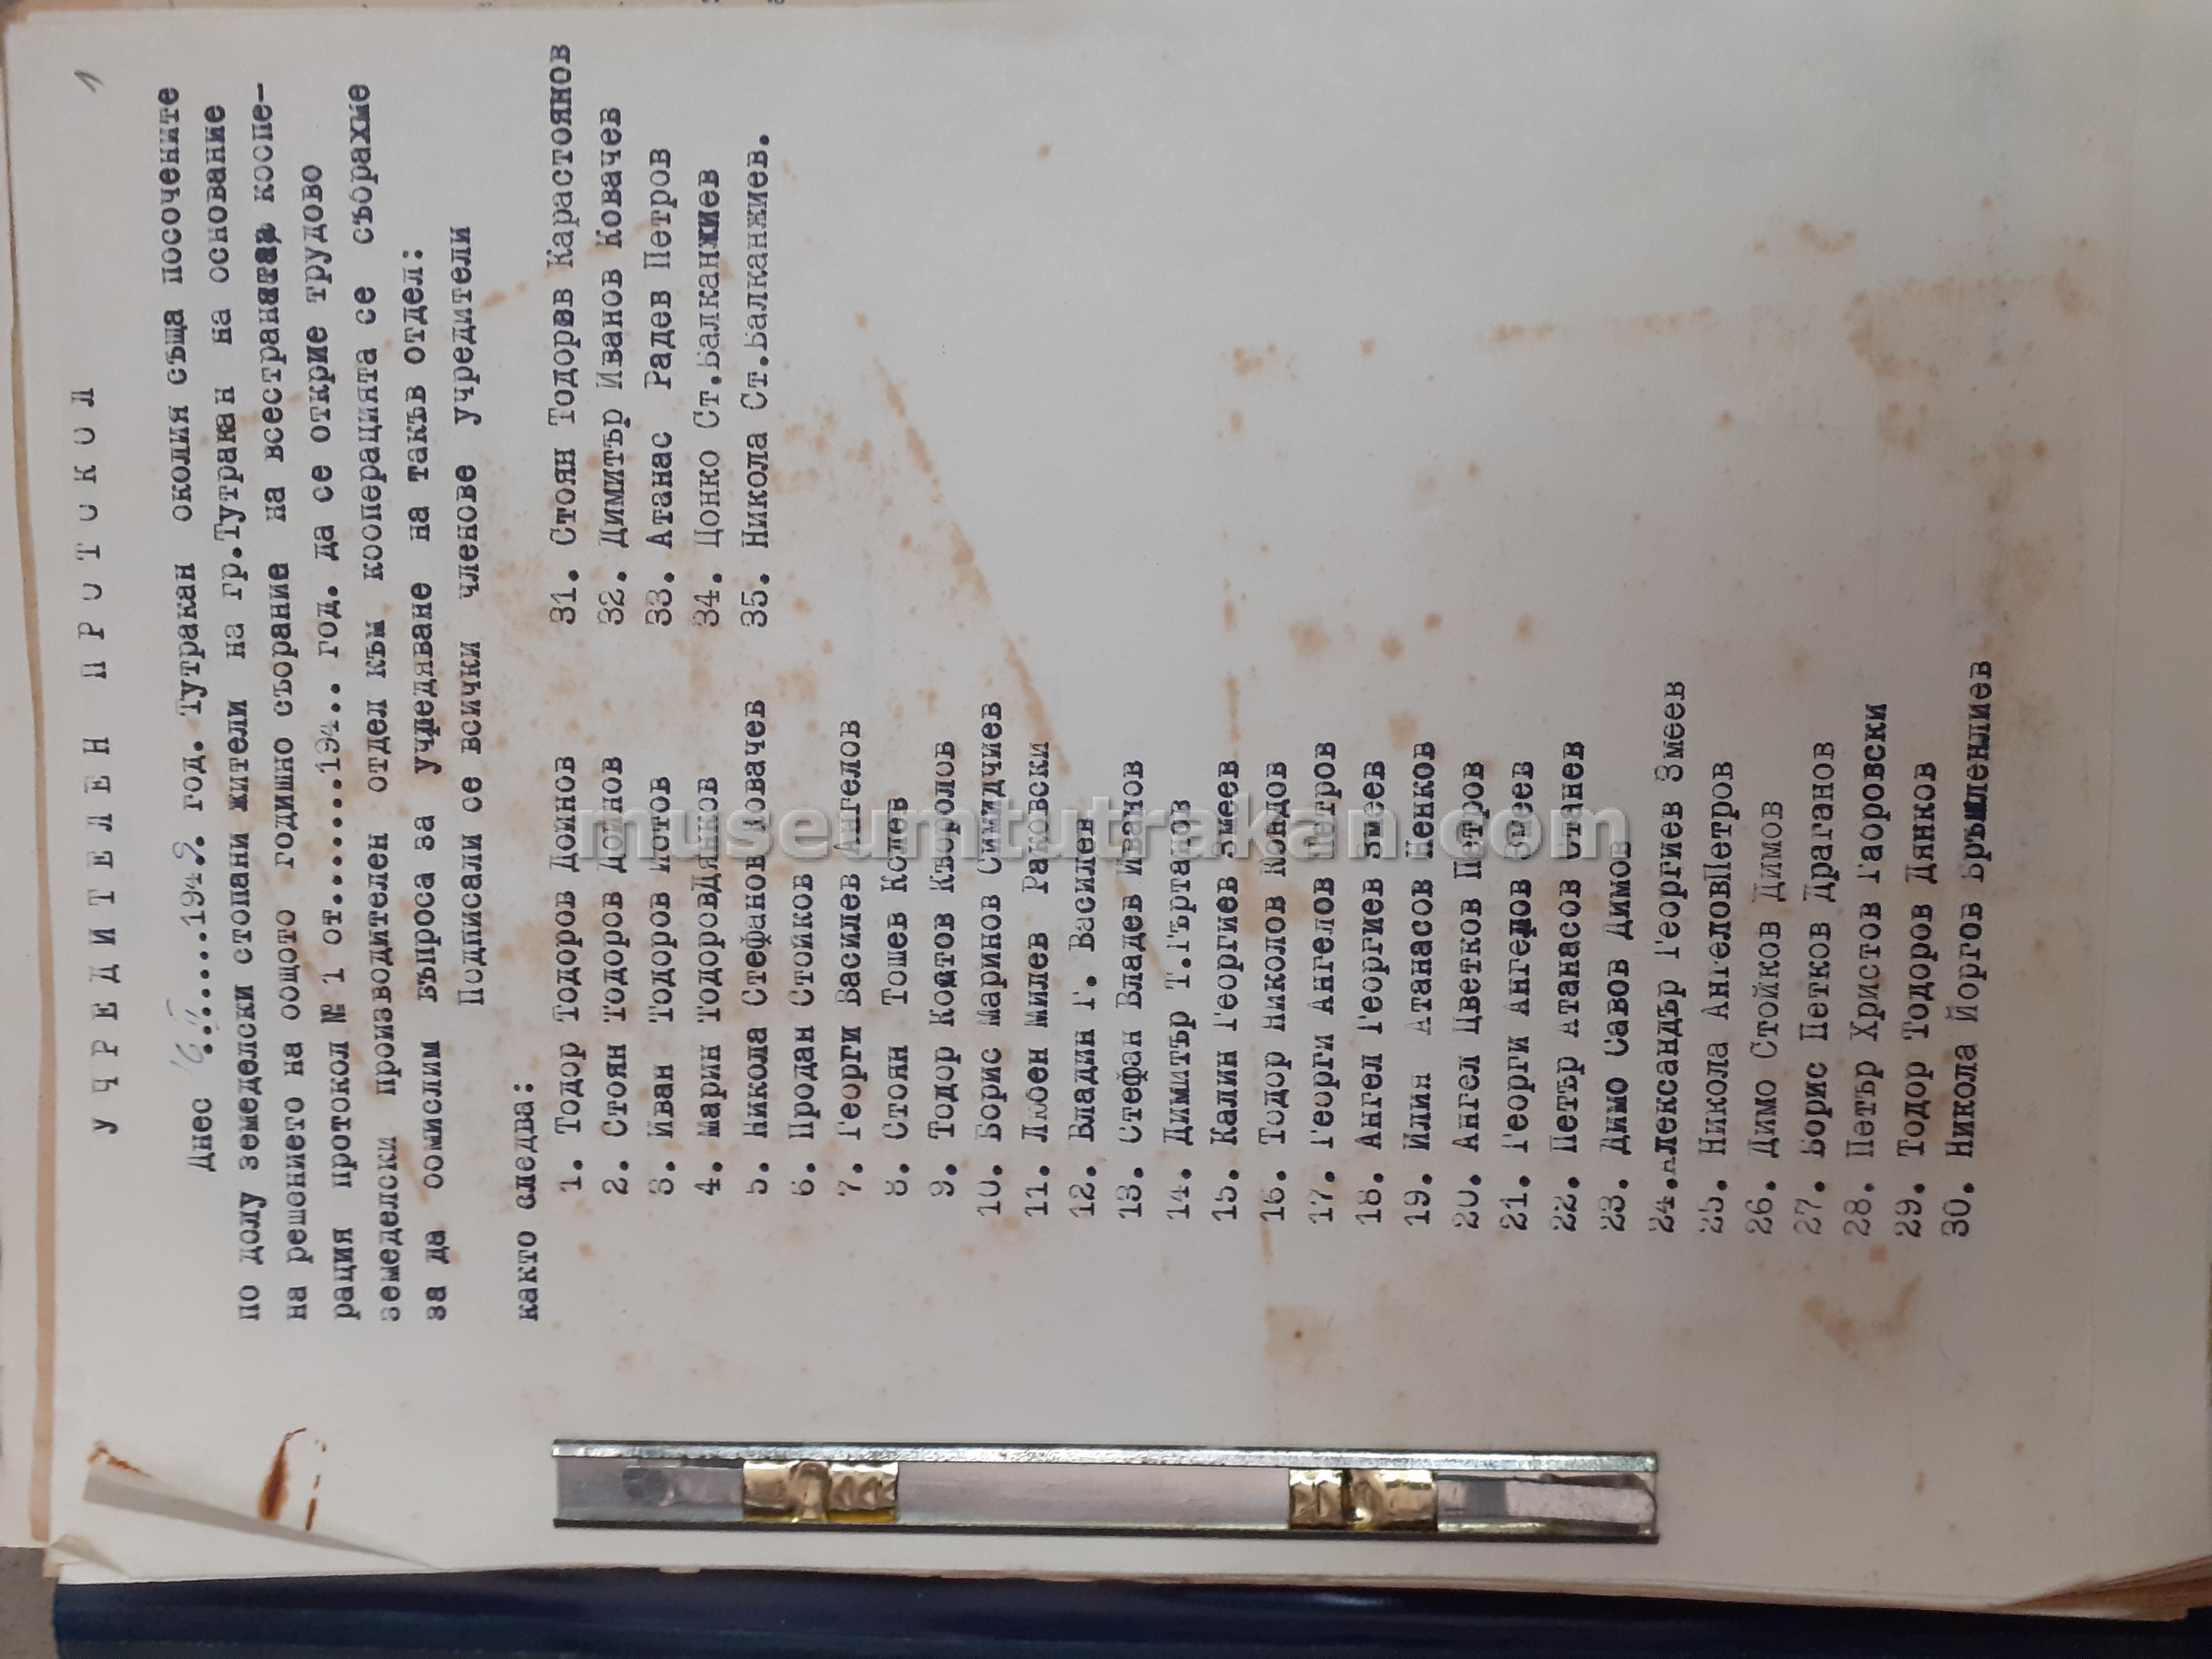 1
УЧРЕДИТЕЛЕН ПРОТОКОЛ
Днес ........194.. год. Тутракан околия съща посочените
по долу земеделски стопани жители на гр.Тутракан на основание
на решението на общото годишно събрание на всестраната коопе-
рация протокол № 1 от.........194.. год. да се открие трудово
земеделски производителен отдел към кооперацията се събрахме
за да обмислим въпроса за учредяване на такъв отдел:
Подписали се всички членове учредители
както следва:
1. Тодор Тодоров Дойнов
2. Стоян Тодоров Дойнов
3. Иван Тодоров Мотов
4. Марин ТодоровДянков
5. Никола Стефанов Ковачев
6. Продан Стойков
7. Георги Василев Ангелов
8. Стоян Тошев Колев
9. Тодор Костов Къоролов
10. Борис Маринов Симидчиев
11. Любен Милев Раковски
12. Владин Г. Василев
13. Стефан Владев Иванов
14. Димитър Т.Гърталов
15. Калин Георгиев Змеев
16. Тодор Николов Кондов
17. Георги Ангелов Петров
18. Ангел Георгиев Змеев
19. Илия Атанасов Ненков
20. Ангел Цветков Петров
21. Георги Ангелов Змеев
22. Петър Атанасов Станев
23. Димо Савов Димов
24.Александър Георгиев Змеев
25. Никола АнгеловПетров
26. Димо Стойков Димов
27. Борис Петков Драганов
28. Петър Христов Габровски
29. Тодор Тодоров Дянков
30. Никола Йоргов Бръшленлиев
31. Стоян Тодорев Карастоянов
32. Димитър Иванов Ковачев
33. Атанас Радев Петров
34. Цонко Ст.Балканжиев
35. Никола Ст.Балканжиев.
museumtutrakan.com